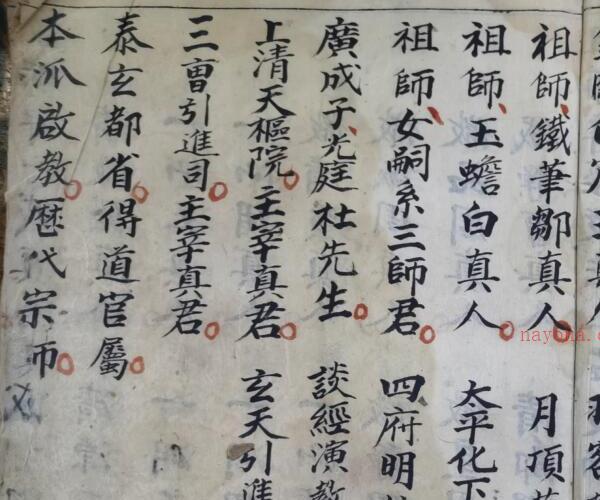 祖師鐵筆鄒真人 月頂
祖師玉蟾白真人 太平化下
祖師女嗣系三師君 四府明
廣成子光庭杜先生 談經演教
上清天樞院主宰真君 玄天引進
三曹引進司主宰真君
泰玄都省得道官屬
本派啟教歷代宗師